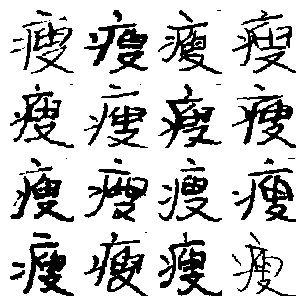 瘦瘦瘦瘦
瘦瘦瘦瘦
瘦瘦瘦瘦
瘦瘦瘦瘦